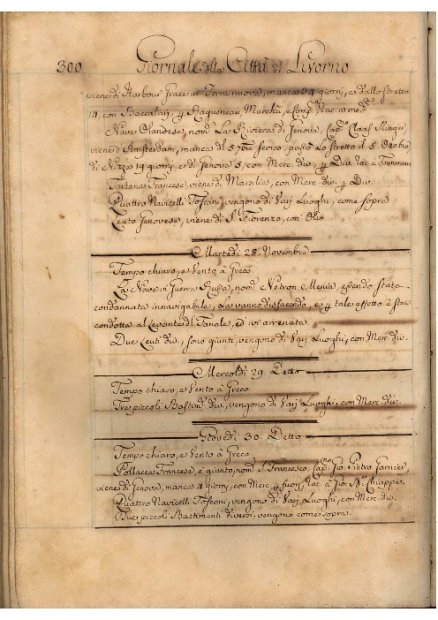 300 Giornale della Città di Livorno
viene di Harbour Grace in Terra nuova, manca 34 giorni, e dallo stretto
14, con Baccalari, p Ragueneau
Nave Olandese, nom.ª La Riviera di Genova, Cap.º Claas
viene d'Amsterdam, manca dì 5 scorso, passò lo stretto il 5
di Nizza 19 giorni, e di Genova 5, con Merc. div.
Tartana Francese, viene di Marsilia, con Merc. div. p Div.
Quattro Navicelli Toscani, vengono di varj Luoghi, come sopra
Leuto Genovese, viene di S. Fiorenzo, con Olio
Martedì 28. Novembre
Tempo chiaro, e Vento à Greco
La Nave in Guerra Russa, nom.ª essendo stata
condannata innavigabile, la vanno disfacendo, e p tale effetto è stata
condotta al Levante del Fanale, ed ivi arrenata
Due Leuti div. sono giunti, vengono di varj Luoghi, con Merc. div.
Mercoldì 29. Detto
Tempo chiaro, e Vento à Greco
Tre piccoli Bastim.ti div. vengono di varj Luoghi, con Merc. div.
Giovedì 30. Detto
Tempo chiaro, e Vento à Greco
Pollacca Francese, è giunta, nom.ª S. Francesco, Cap.º Gio. Pietro Garnier,
viene di Genova, manca 4 giorni, con Merc. p fuori, Rac. à Gio. Chiappe
Quattro Navicelli Toscani, vengono di varj Luoghi, con Merc. div.
Due piccoli Bastimenti diversi, vengono come sopra